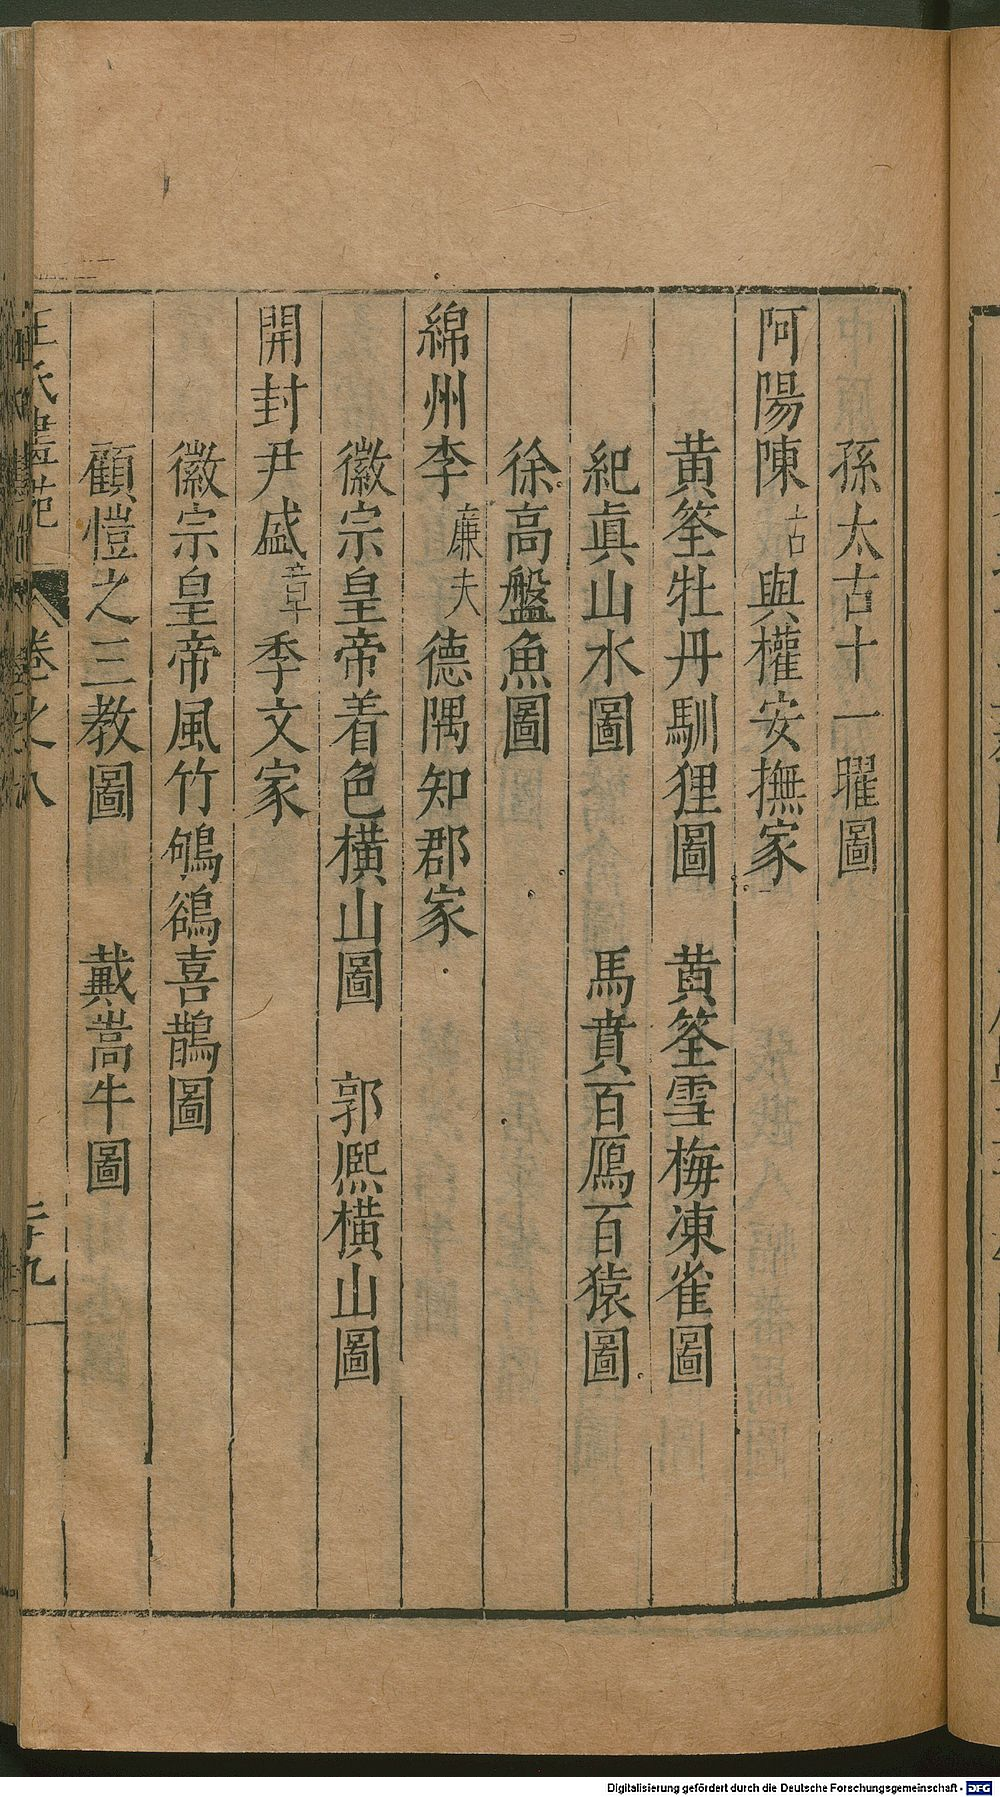 孫太古十一曜圖
阿陽陳古與權安撫家
黃筌牡丹馴狸圖　黃筌雪梅凍雀圖
紀眞山水圖　馬賁百鴈百猿圖
徐高盤魚圖
綿州李廉夫德隅知郡家
徽宗皇帝着色橫山圖　郭熈橫山圖
開封尹盛章季文家
徽宗皇帝風竹鴝鵒喜鵲圖
顧愷之三教圖　戴嵩牛圖
王氏畫苑　卷之八　二十九
Digitalisierung gefördert durch die Deutsche Forschungsgemeinschaft - DFG